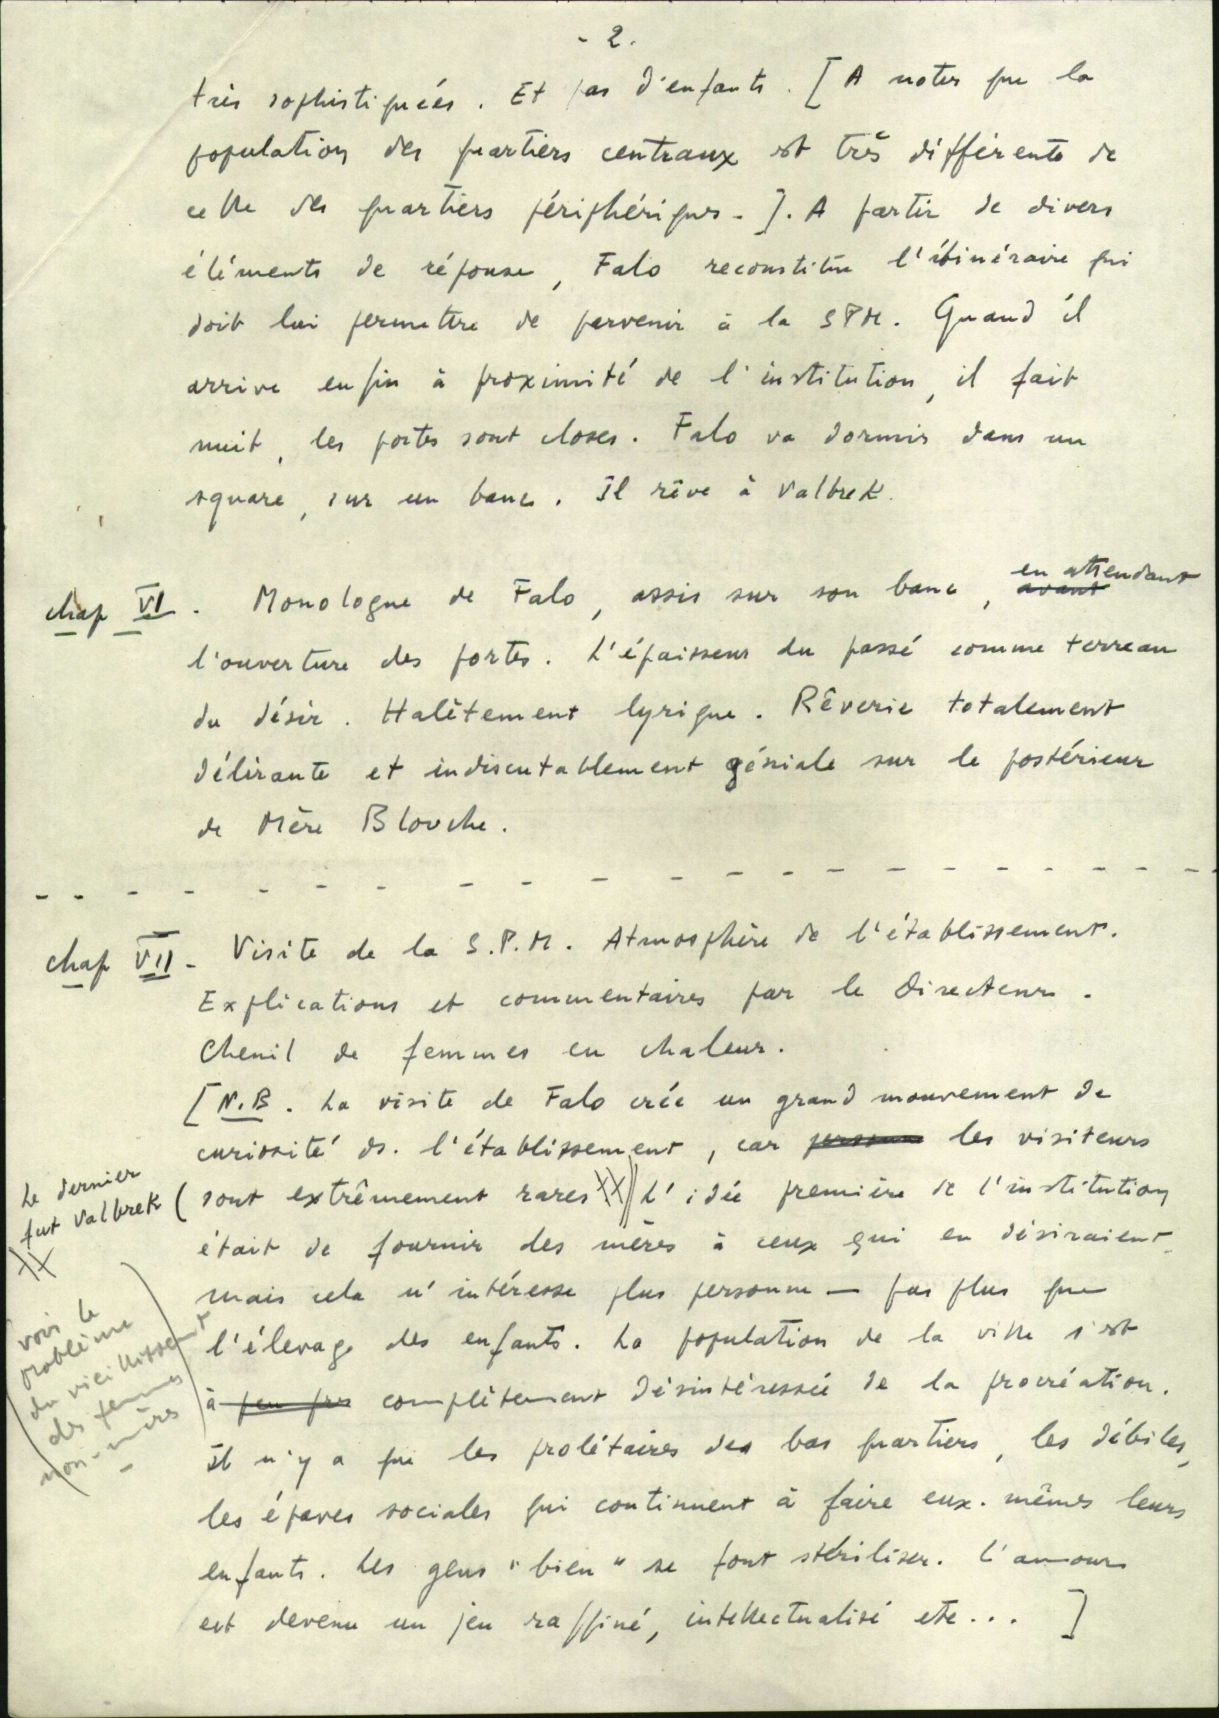 - 2.
très sophistiquées. Et pas d'enfants. [ A noter que la
population des quartiers centraux est très différente de
celle des quartiers périphériques - ]. A partir de divers
éléments de réponse, Falo reconstitue l'itinéraire qui
doit lui permettre de parvenir à la SPM. Quand il
arrive enfin à proximité de l'institution, il fait
nuit, les portes sont closes. Falo va dormir dans un
square, sur un banc. Il rêve à Valbrek.
en attendant
chap VI. Monologue de Falo, assis sur son banc, avant
l'ouverture des portes. L'épaisseur du passé comme terreau
du désir. Halètement lyrique. Rêverie totalement
délirante et indiscutablement géniale sur le postérieur
de Mère Blouche.
chap VII - Visite de la S.P.M. Atmosphère de l'établissement.
Explications et commentaires par le Directeur.
Chenil de femmes en chaleur.
[ N.B. La visite de Falo crée un grand mouvement de
curiosité ds. l'établissement, car les visiteurs
sont extrêmement rares XX) L'idée première de l'institution
était de fournir des mères à ceux qui en désiraient,
mais cela n'intéresse plus personne — pas plus que
l'élevage des enfants. La population de la ville s'est
à peu près complètement désintéressée de la procréation.
Il n'y a que les prolétaires des bas quartiers, les débiles,
les épaves sociales qui continuent à faire eux-mêmes leurs
enfants. Les gens "bien" se font stériliser. L'amour
est devenu un jeu raffiné, intellectualisé etc... ]
Le dernier
fut Valbrek (
XX
voir le
problème
du vieillissement
des femmes
non-mères